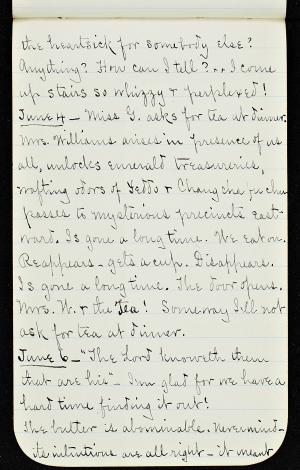 the heartsick for somebody else?
Anything? How can I tell? .. I come
up stairs so whizzy & perplexed!
June 4 – Miss G. asks for tea at dinner.
Mrs. Williams arises in presence of us
all, unlocks emerald treasuries,
wafting odors of Yeddo &
passes to mysterious precincts east-
ward. Is gone a long time. We eat on.
Reappears – gets a cup. Disappears.
Is gone a long time. The door opens.
Mrs. W. & the Tea! Someway I'll not
ask for tea at dinner.
June 6 – "The Lord knoweth them
that are his" – I'm glad for we have a
hard time finding it out!
The butter is abominable. Nevermind –
its intuitions are all right – it meant